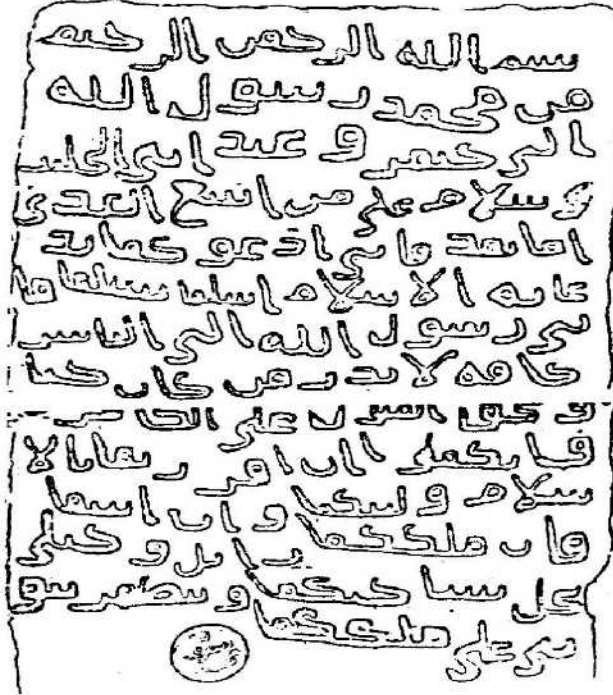 بسم الله الرحمن الرحيم
من محمد رسول الله
الى جيفر و عبد ابني الجلند
ى سلام على من اتبع الهدى
اما بعد فاني ادعوكما بد
عاية الاسلام اسلما تسلما فا
ني رسول الله الى الناس
كافة لانذر من كان حيا
و يحق القول على الكافرين
فانكما ان اقررتما بالا
سلام وليتكما وان ابيتما
فان ملككما زايل و خيلي
تحل بساحتكما و تظهر نبو
تي على ملككما